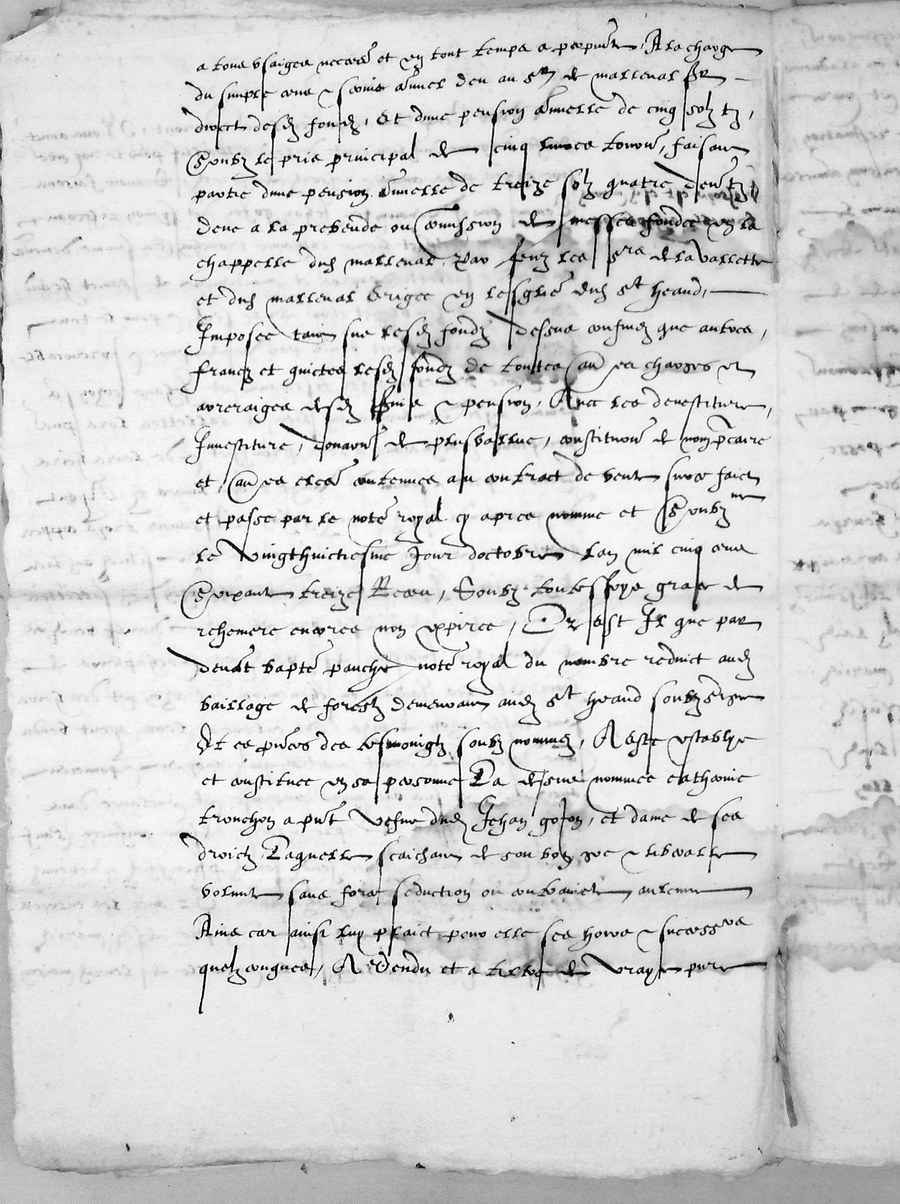 a tous usaiges necess^res et en tout temps a perpetuite, A la charge
du simple cens & servis annuel deu au s^r de mallenal s^r
direct desd fondz, Et dune pension annuelle de cinq solz tz,
Soubz le pris principal de cinq livres tournois, faisant
partie dune pension annuelle de treize solz quatre deniers tz
deue a la prebende ou commission de messes fondee en la
chappelle dud mallenal, par feuz les s^rs de la vallette
et dud mallenal Erigee en lesglise dud s^t heand,
Imposee sur lesd fondz dessus confinez que autres,
francz et quictes lesd fondz de toutes charges et
arreraiges desd servis & pension, Avec les devestiture,
Investiture, donation de plusvallue, constitution de nom precaire
et clauses contenues au contract de vente sur ce faict
et passe par le not^re royal cy apres nomme et Soubz^ne
le vingthuictiesme Jour doctobre lan mil cinq cens
Soixante treize Receu, Soubz toutesfoys grace de
rehemere encores non expiree, Or est Il que par
devant bapt^e panchy not^re royal du nombre reduict aud
bailliage de forestz demeurant aud s^t heand soubzsigne
Et es presences des tesmoingtz soubz nommez, A este establye
et constituee en sa personne La desus nommee catherine
tronchon a present vefve dud Jehan gojon, et dame de ses
droictz, Laquelle scaichant de son bon gre & liberalle
volunte sans force seduction ou contrainte aulcune
Ains car ainsi luy plaict pour elle ses hoirs & successeurs
quelzconques, A Vendu et a tiltre de vraye pure